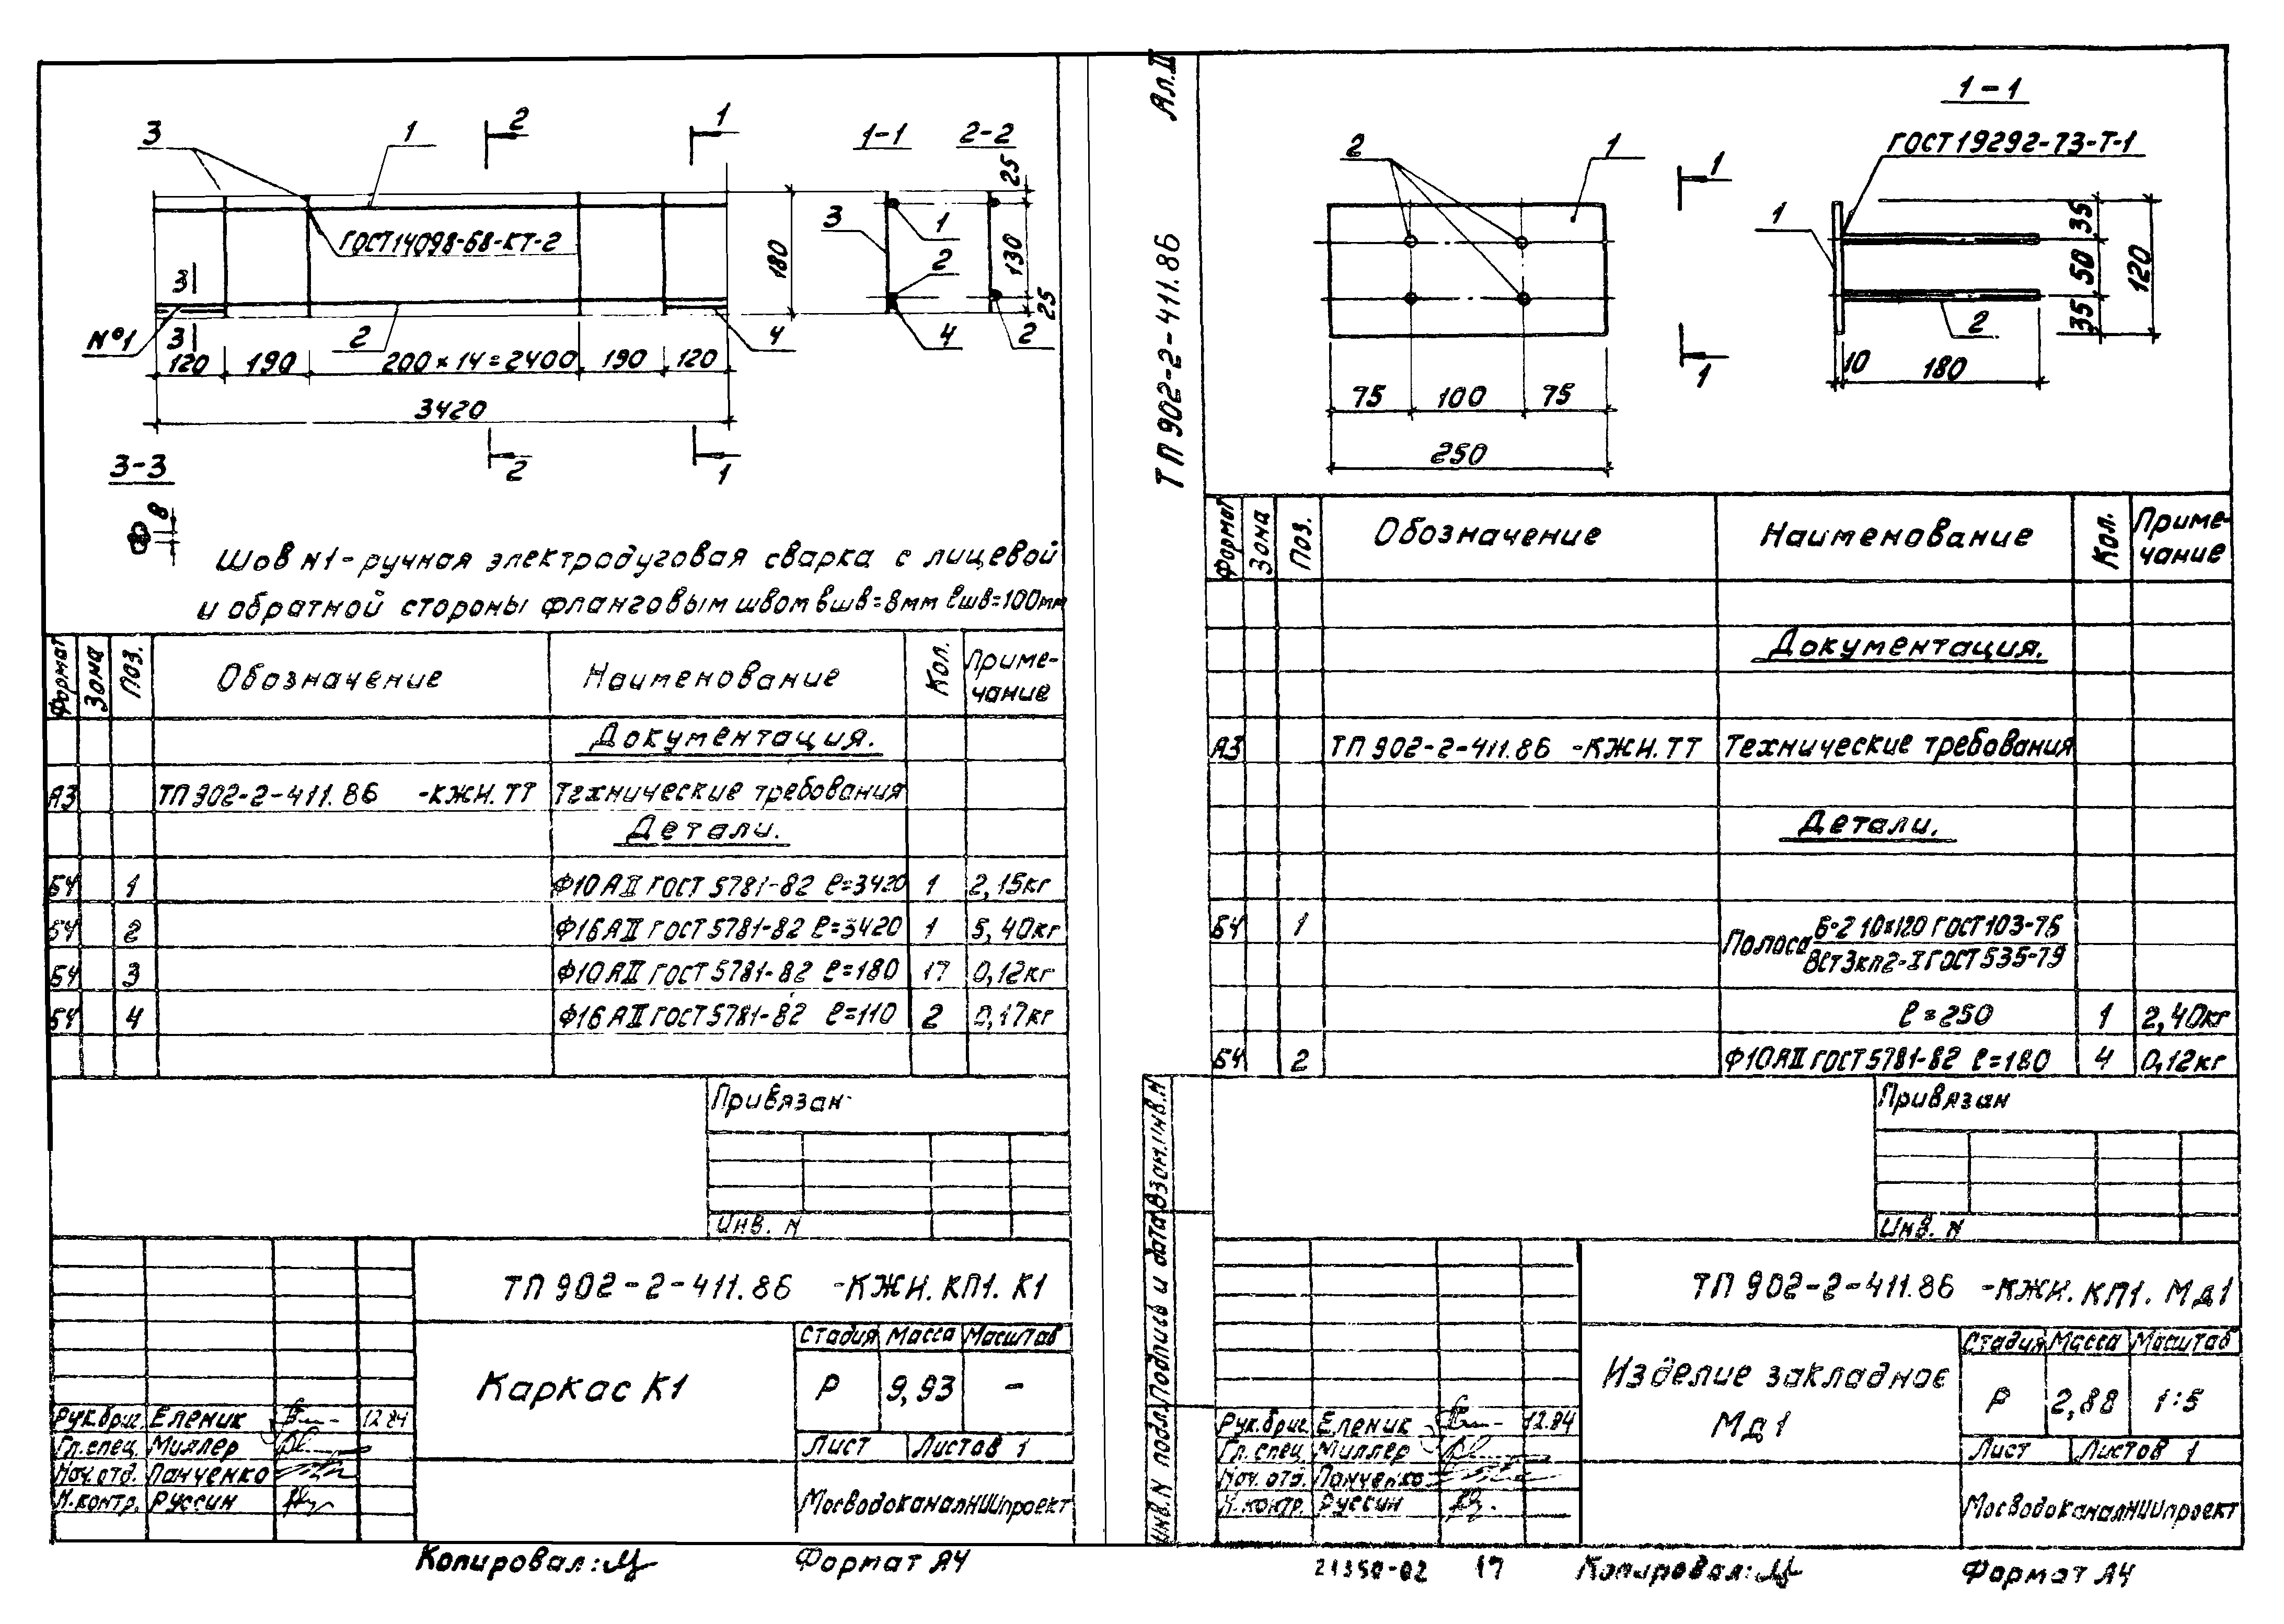 3
1
2
1
1-1
2-2
25
ГОСТ14098-68-КТ-2
180
3
1
2
130
3
25
№1
3
2
4
4
2
120
190
200×14=2400
190
120
3420
2
1
3-3
8
Шов N1-ручная электродуговая сварка с лицевой
и обратной стороны фланговым швом bшв=8мм ℓшв=100мм
Формат Зона Поз. Обозначение Наименование Кол. Приме-
чание
Документация.
А3 ТП 902-2-411.86 -КЖИ.ТТ Технические требования
Детали.
БЧ 1 Ф10АII ГОСТ 5781-82 ℓ=3420 1 2,15кг
БЧ 2 Ф16АII ГОСТ 5781-82 ℓ=3420 1 5,40кг
БЧ 3 Ф10АII ГОСТ 5781-82 ℓ=180 17 0,12кг
БЧ 4 Ф16АII ГОСТ 5781-82 ℓ=110 2 0,17кг
Привязан
Инв. N
ТП 902-2-411.86 -КЖИ.КП1.К1
Каркас К1
Стадия Масса Масштаб
Р 9,93 -
Лист Листов 1
Рук.бриг. Еленик 12.84
Гл.спец. Миллер
Нач.отд. Панченко
Н.контр. Руссин
МосводоканалНИИпроект
Копировал:
Формат А4
Ал.II
ТП 902-2-411.86
1-1
ГОСТ19292-73-Т-1
2
1
1
1
35
50
35
120
2
1
10
180
75
100
75
250
Формат Зона Поз. Обозначение Наименование Кол. Приме-
чание
Документация.
А3 ТП 902-2-411.86 -КЖИ.ТТ Технические требования
Детали.
БЧ 1 Полоса Б-2 10×120 ГОСТ103-76
ВСт3кп2-I ГОСТ 535-79
ℓ=250 1 2,40кг
БЧ 2 Ф10АII ГОСТ 5781-82 ℓ=180 4 0,12кг
Привязан
Инв. N
Инв.N подл. Подпись и дата Взам.инв.N
ТП 902-2-411.86 -КЖИ.КП1.Мд1
Изделие закладное
Мд1
Стадия Масса Масштаб
Р 2,88 1:5
Лист Листов 1
Рук.бриг. Еленик 12.84
Гл.спец Миллер
Нач.отд. Панченко
Н.контр. Руссин
МосводоканалНИИпроект
21350-02 17 Копировал:
Формат А4